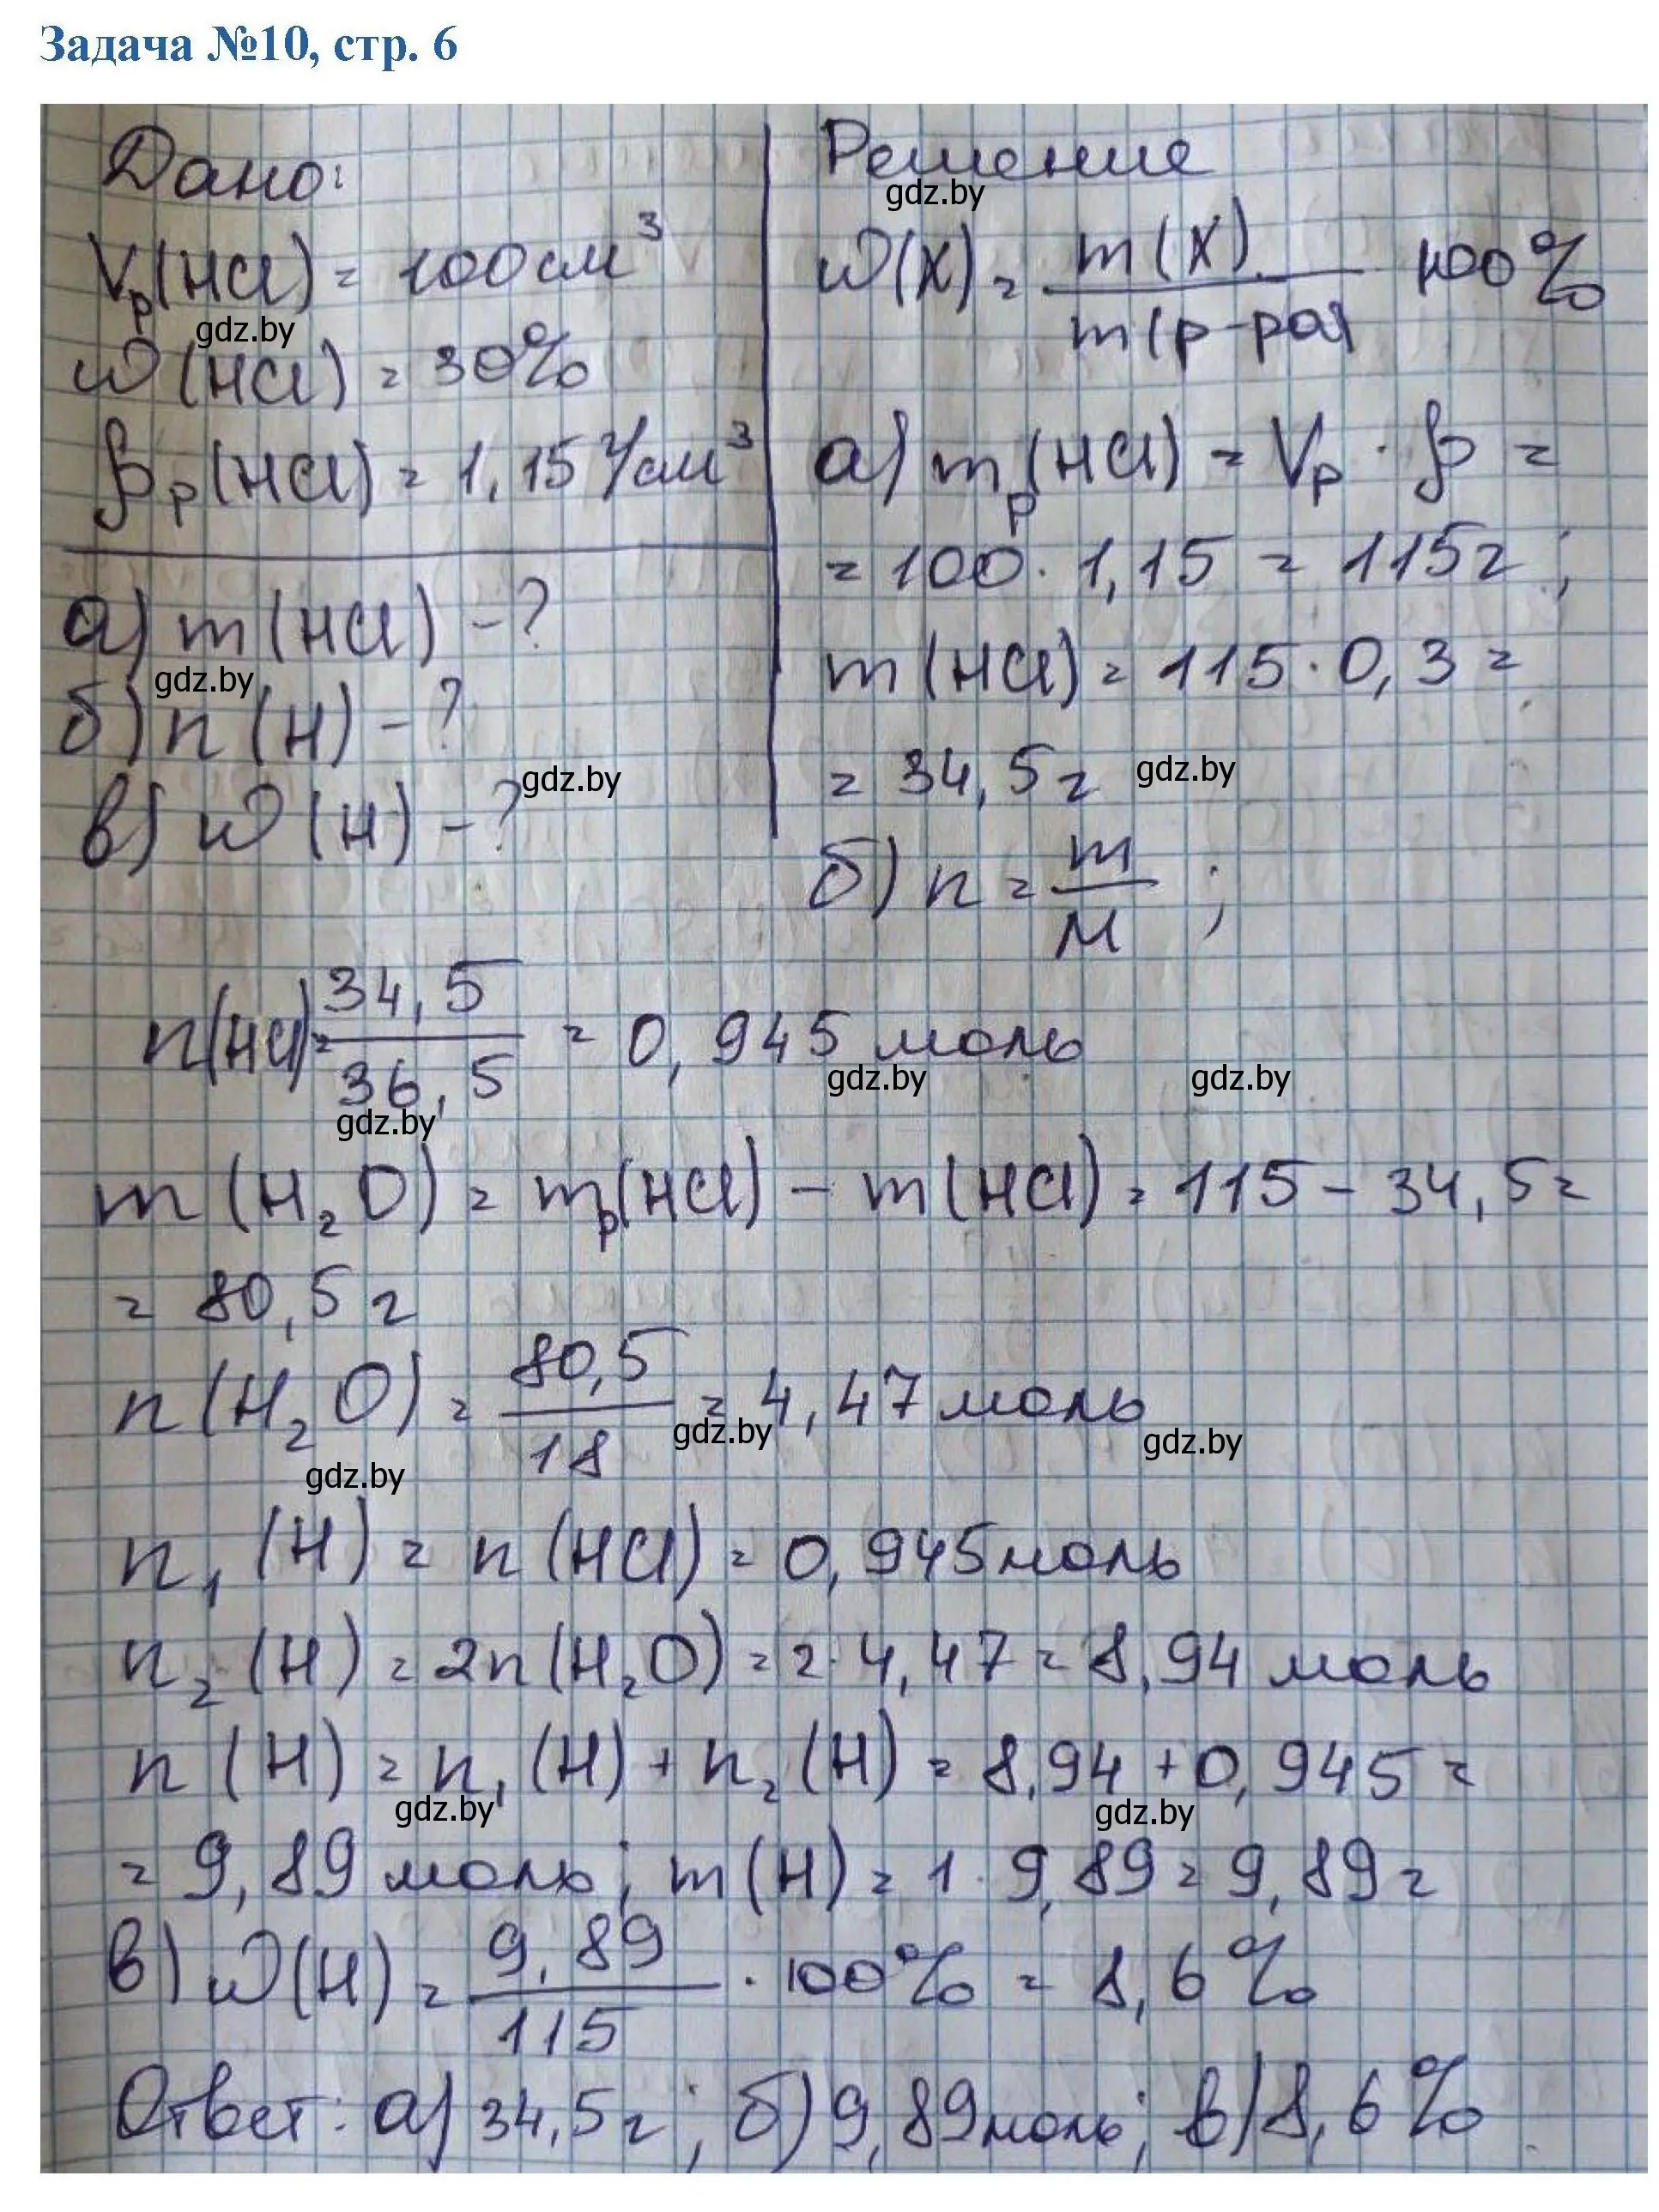 Задача №10, стр. 6
Дано:
Vр(HCl) = 100 см³
w(HCl) = 30%
ρр(HCl) = 1,15 г/см³
а) m(HCl) - ?
б) n(H) - ?
в) w(H) - ?
Решение
w(X) = m(X) / m(р-ра) 100%
а) mр(HCl) = Vр · ρ =
= 100 · 1,15 = 115г;
m(HCl) = 115 · 0,3 =
= 34,5г
б) n = m / M ;
n(HCl) = 34,5 / 36,5 = 0,945 моль
m(H₂O) = mр(HCl) - m(HCl) = 115 - 34,5 =
= 80,5 г
n(H₂O) = 80,5 / 18 = 4,47 моль
n₁(H) = n(HCl) = 0,945 моль
n₂(H) = 2n(H₂O) = 2 · 4,47 = 8,94 моль
n(H) = n₁(H) + n₂(H) = 8,94 + 0,945 =
= 9,89 моль; m(H) = 1 · 9,89 = 9,89 г
в) w(H) = 9,89 / 115 · 100% = 8,6%
Ответ: а) 34,5г; б) 9,89 моль; в) 8,6%
gdz.by
gdz.by
gdz.by
gdz.by
gdz.by
gdz.by
gdz.by
gdz.by
gdz.by
gdz.by
gdz.by
gdz.by
gdz.by